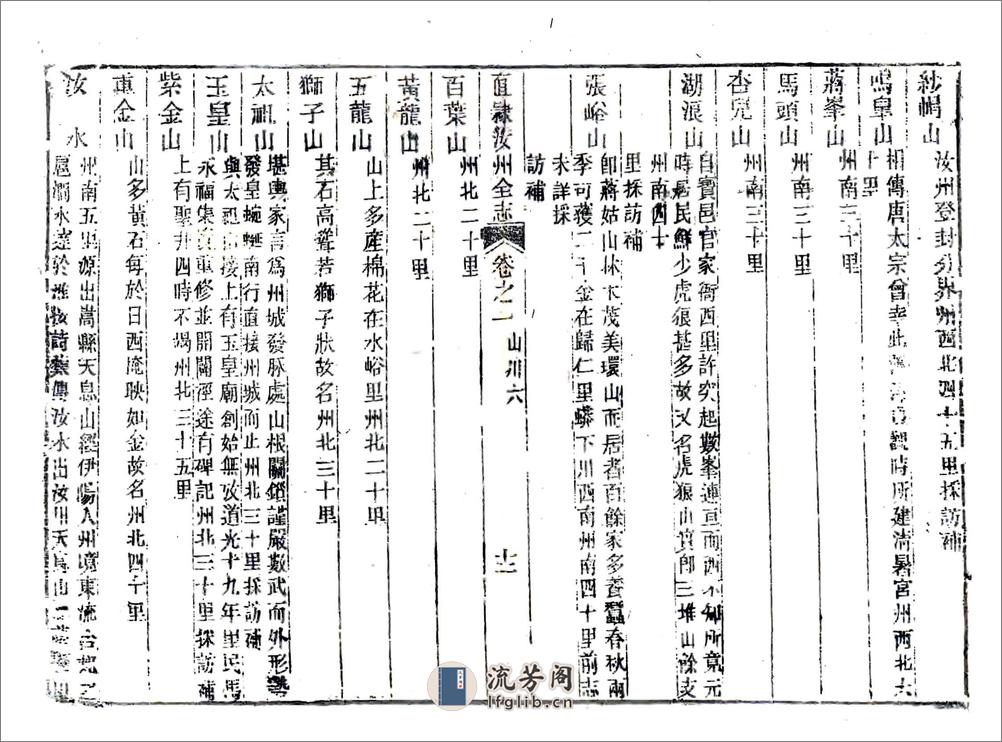 紗帽山 汝州登封分界州西北四十五里採訪補
鳴皐山 相傳唐太宗曾幸此 時所建清暑宮州西北六
十里
蔣峯山 州南三十里
馬頭山 州南三十里
杏兒山 州南三十里
湖浪山 自寶邑官家衙西里許突起數峯連亘而西不知所竟元
時居民鮮少虎狼甚多故又名虎狼山眞卽三堆山餘支
州南四十
里採訪補
張峪山 卽蔣姑山林木茂美環山而居者百餘家多養蠶春秋兩
季可獲二千金在歸仁里蟒下川西南州南四十里前志
未詳採
訪補
直隸汝州全志 卷之二 山川六 十二
百葉山 州北二十里
黃龍山 州北二十里
五龍山 山上多產棉花在水峪里州北二十里
獅子山 其石高聳若獅子狀故名州北三十里
太祖山 堪輿家言爲州城發脉處山根關鎖謹嚴數武而外形
發皇蜿蜒南行直接州城而止州北三十里採訪補
玉皇山 與太 山接上有玉皇廟創始無攷道光十九年里民馬
永福集 重修並開闢徑途有碑記州北三十里採訪補
紫金山 上有聖井四時不竭州北三十五里
重金山 山多黃石每於日西掩映如金故名州北四十里
汝水 州南五里源出嵩縣天息山經伊陽入州境東流合 之
扈澗水達於淮 詩 傳汝水出汝州天息山
流芳阁
lfglib.cn